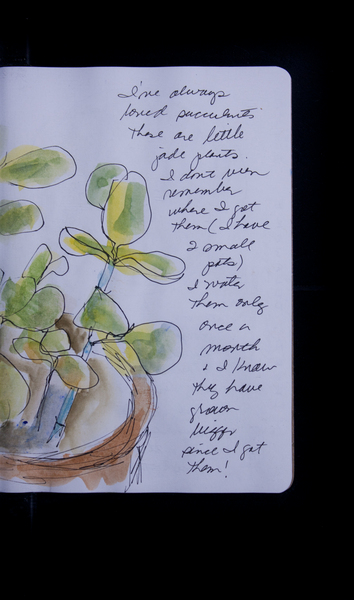 I've always
loved succulents
These are little
jade plants.
I don't even
remember
where I got
them (I have
2 small
pots)
I water
them only
once a
month
& I know
they have
grown
bigger
since I got
them!